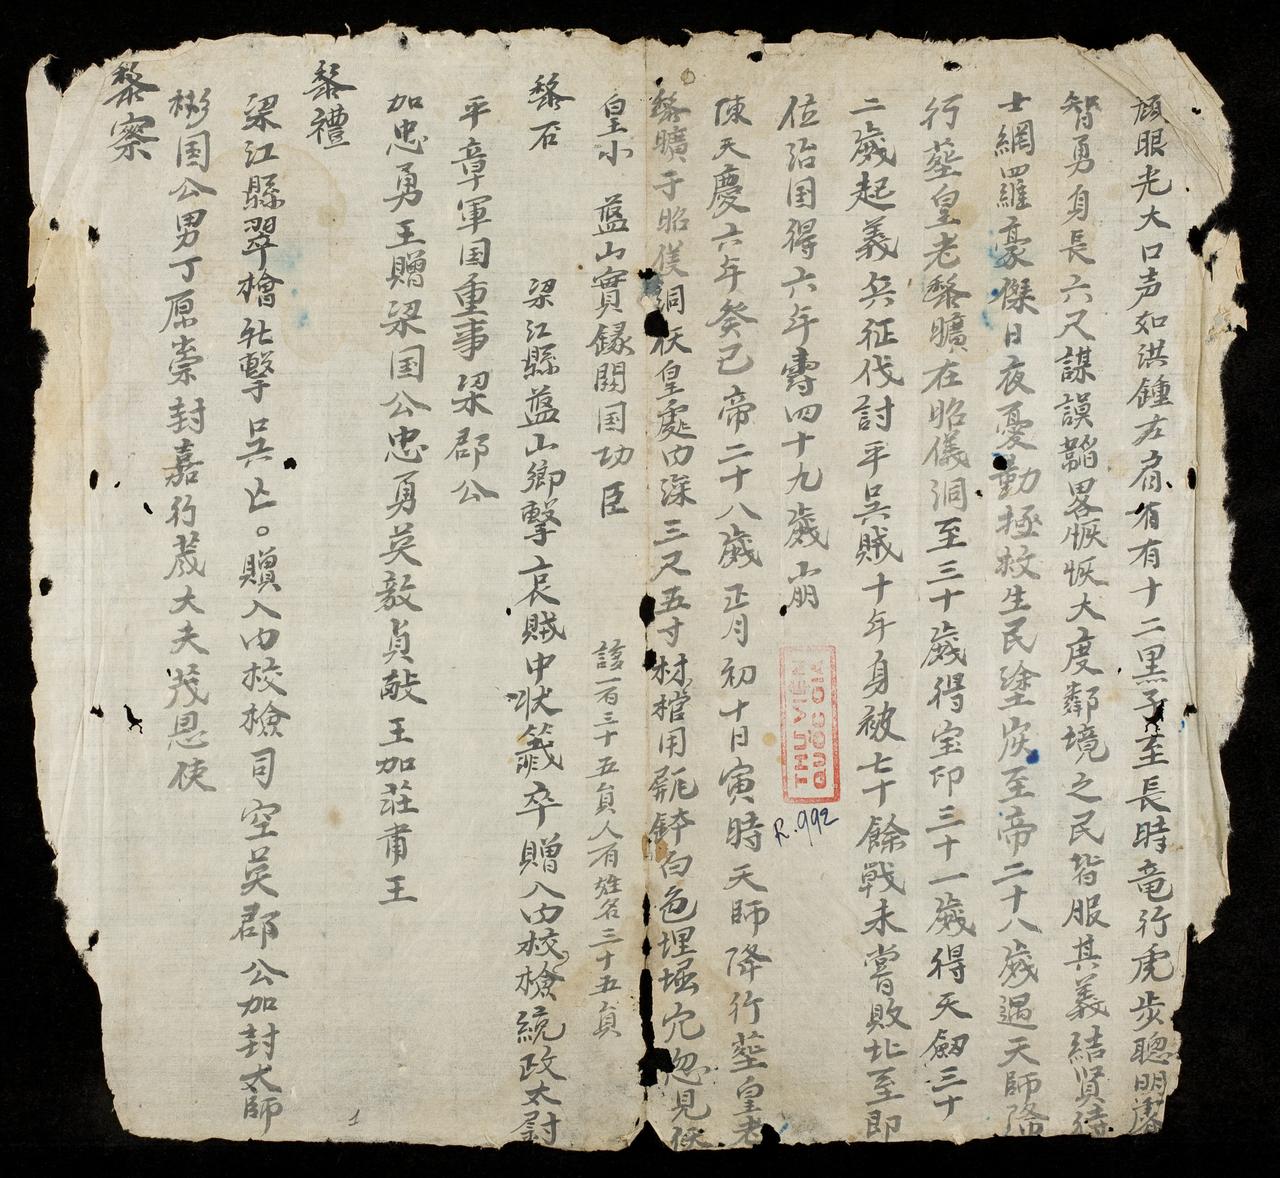 頎眼光大口声如洪鍾左肩有有十二黒子至長時竜行虎步聰明濬
智勇身長六尺謀謨韜畧恢恢大度鄰境之民皆服其義結贤待
士網羅豪傑日夜憂勤拯救生民塗炭至帝二十八歲遇天師降
行塟皇老黎曠在昭儀洞至三十歲得宝印三十一歲得天劔三十
二歲起義兵征伐討平吳賊十年身被七十餘戰未嘗敗北至即
位治国得六年壽四十九歲崩
陳天慶六年癸巳帝二十八歲正月初十日寅時天師降行塟皇老
黎曠于昭儀洞佛皇處内深三尺五寸材棺用瓶缽白色埋堀穴忽見佛
皇小 藍山實錄開国功臣 該一百三十五員人有姓名三十五員
黎石 梁江縣藍山鄉擊哀賊中伏籤卒贈入内校檢統政太尉
平章軍国重事梁郡公
加忠勇王贈梁国公忠勇英毅貞敏王加莊甫王
黎禮
梁江縣翠檜社擊吳亡。贈入内校檢司空英郡公加封太師
彬国公男丁原崇封嘉行大夫茂恩使
黎察
THU VIEN
QUOC GIA
R.992
1